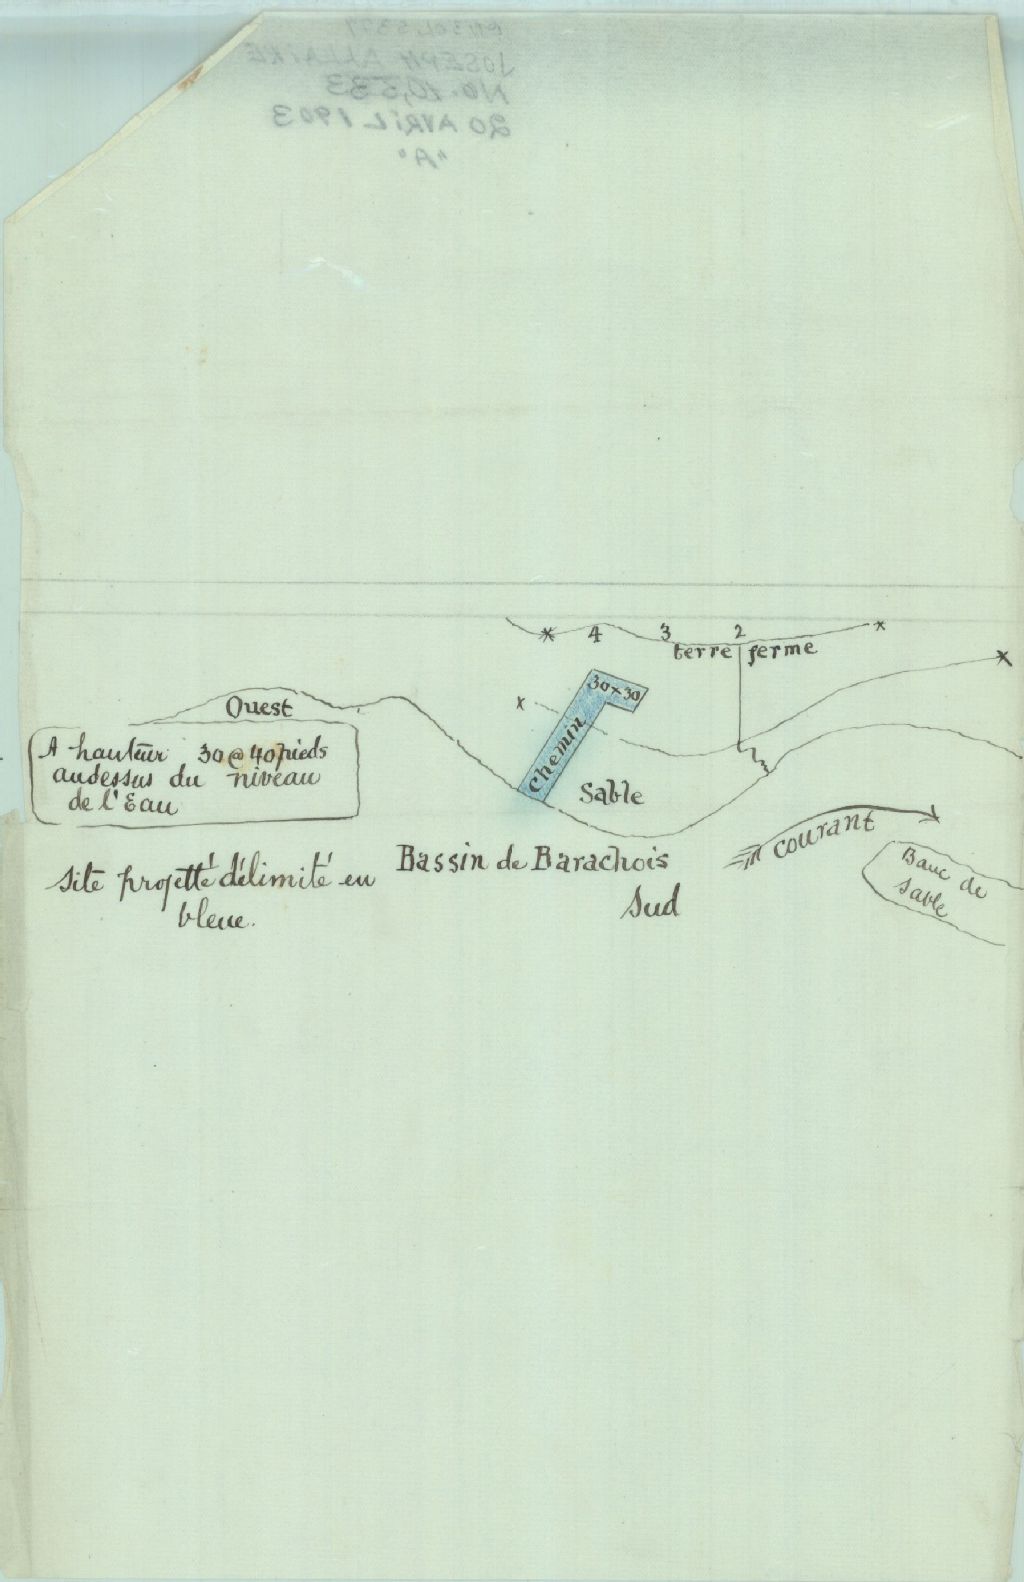 JOSEPH ALLAIRE
No. 10,533
20 AVRIL 1903
"A"
4 3 2
terre ferme
30 x 30
Chemin
Ouest
A hauteur 30 @ 40 pieds
audessus du niveau
de l'Eau
Sable
Bassin de Barachois
Sud
courant
Banc de
sable
Site projetté délimité en
bleue.